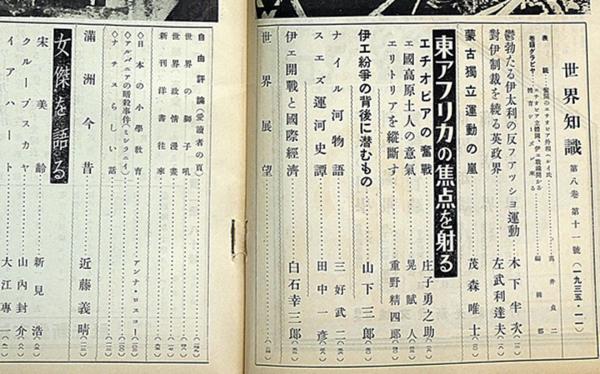 世界知識
第八卷 第十一號 (一九三五・一一)
鬱勃たる伊太利の反ファッショ運動 木下半次
對伊制裁を繞る英政界 左武利達夫
蒙古獨立運動の嵐 茂森唯士
東アフリカの焦点を射る
エチオピアの奮戰 庄子勇之助
エ國高原土人の意氣 晃賦人
エリトリアを縱斷す 重野精四郎
伊エ紛爭の背後に潜むもの 山下三郎
ナイル河物語 三好武二
スエズ運河史譚 田中一彦
伊エ開戰と國際經濟 白石幸三郎
世界展望
自由評論(愛讀者の頁)
世界の獅子吼
世界政情漫畫
新刊洋書往來
◇日本の小學教育 アンナ・ロスコー
◇アルバニアの暗殺事件
◇ナチスらしい話
滿洲今昔 近藤義晴
女傑を語る
宋美齡 新見浩
クループスカヤ 山内封介
イアハート 大江專一